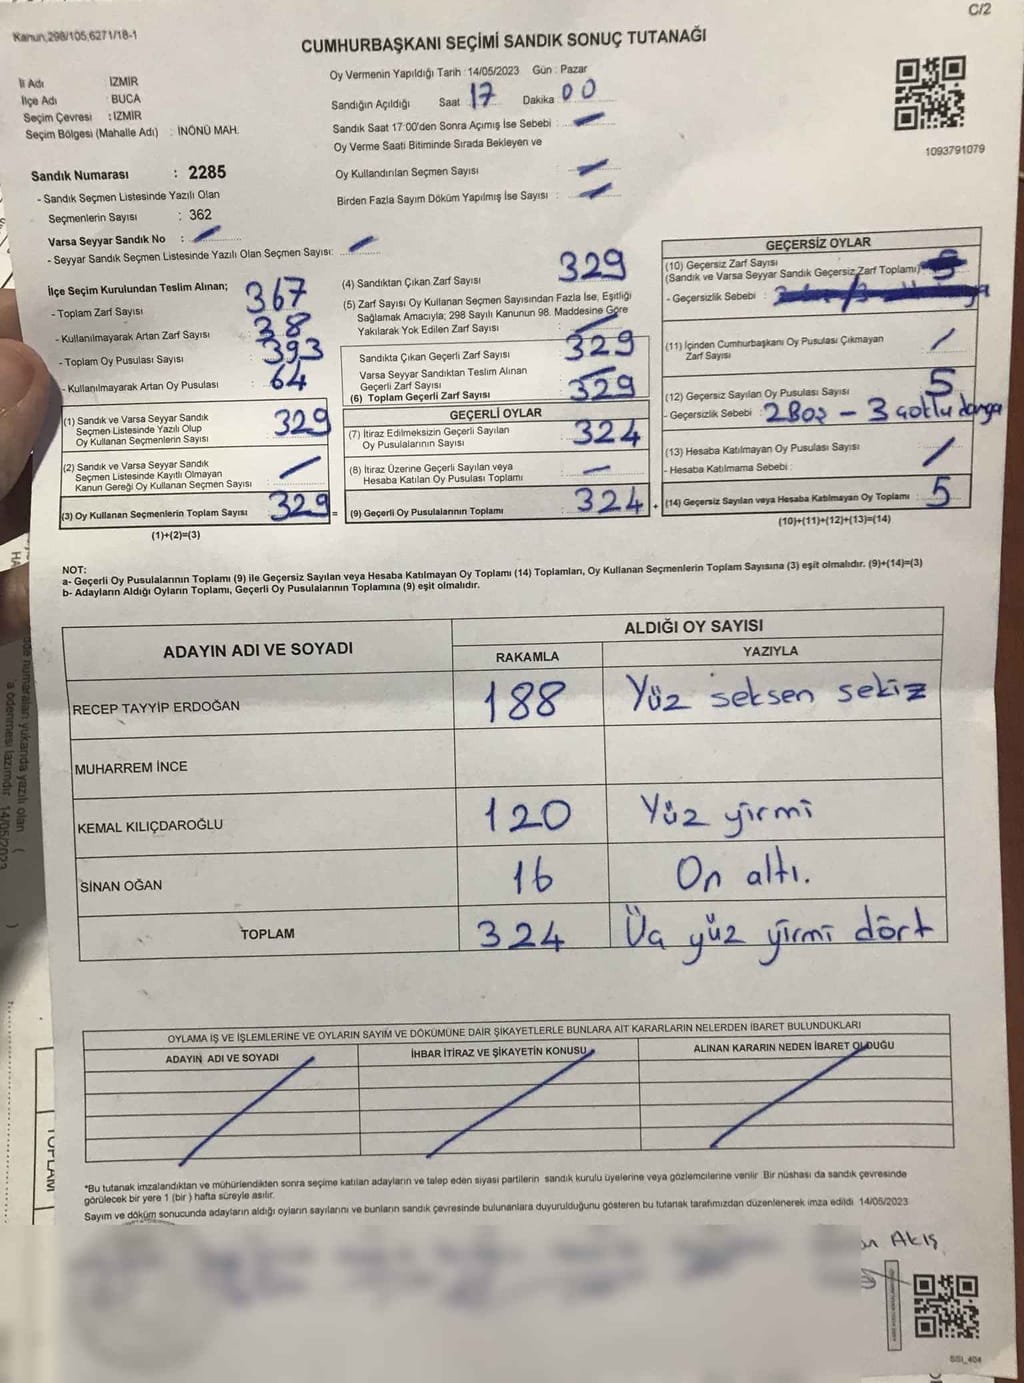 C/2
Kanun,298/105;6271/18-1
CUMHURBAŞKANI SEÇİMİ SANDIK SONUÇ TUTANAĞI
İl Adı IZMIR
İlçe Adı BUCA
Seçim Çevresi : IZMIR
Seçim Bölgesi (Mahalle Adı) : İNÖNÜ MAH.
Oy Vermenin Yapıldığı Tarih : 14/05/2023 Gün : Pazar
Sandığın Açıldığı Saat 17 Dakika 00
Sandık Saat 17:00'den Sonra Açımış İse Sebebi :
Oy Verme Saati Bitiminde Sırada Bekleyen ve
Oy Kullandırılan Seçmen Sayısı
Birden Fazla Sayım Döküm Yapılmış İse Sayısı :
1093791079
Sandık Numarası : 2285
- Sandık Seçmen Listesinde Yazılı Olan
Seçmenlerin Sayısı : 362
Varsa Seyyar Sandık No :
- Seyyar Sandık Seçmen Listesinde Yazılı Olan Seçmen Sayısı:
İlçe Seçim Kurulundan Teslim Alınan;
- Toplam Zarf Sayısı 367
- Kullanılmayarak Artan Zarf Sayısı : 38
- Toplam Oy Pusulası Sayısı : 393
- Kullanılmayarak Artan Oy Pusulası : 64
(1) Sandık ve Varsa Seyyar Sandık
Seçmen Listesinde Yazılı Olup
Oy Kullanan Seçmenlerin Sayısı 329
(2) Sandık ve Varsa Seyyar Sandık
Seçmen Listesinde Kayıtlı Olmayan
Kanun Gereği Oy Kullanan Seçmen Sayısı :
(3) Oy Kullanan Seçmenlerin Toplam Sayısı 329 =
(1)+(2)=(3)
(4) Sandıktan Çıkan Zarf Sayısı 329
(5) Zarf Sayısı Oy Kullanan Seçmen Sayısından Fazla İse, Eşitliği
Sağlamak Amacıyla; 298 Sayılı Kanunun 98. Maddesine Göre
Yakılarak Yok Edilen Zarf Sayısı :
Sandıkta Çıkan Geçerli Zarf Sayısı : 329
Varsa Seyyar Sandıktan Teslim Alınan
Geçerli Zarf Sayısı
(6) Toplam Geçerli Zarf Sayısı : 329
GEÇERLİ OYLAR
(7) İtiraz Edilmeksizin Geçerli Sayılan
Oy Pusulalarının Sayısı : 324
(8) İtiraz Üzerine Geçerli Sayılan veya
Hesaba Katılan Oy Pusulası Toplamı :
(9) Geçerli Oy Pusulalarının Toplamı : 324 +
GEÇERSİZ OYLAR
(10) Geçersiz Zarf Sayısı
(Sandık ve Varsa Seyyar Sandık Geçersiz Zarf Toplamı)
- Geçersizlik Sebebi :
(11) İçinden Cumhurbaşkanı Oy Pusulası Çıkmayan
Zarf Sayısı
(12) Geçersiz Sayılan Oy Pusulası Sayısı 5
- Geçersizlik Sebebi : 2 Boş - 3 çoklu damga
(13) Hesaba Katılmayan Oy Pusulası Sayısı
- Hesaba Katılmama Sebebi :
(14) Geçersiz Sayılan veya Hesaba Katılmayan Oy Toplamı : 5
(10)+(11)+(12)+(13)=(14)
NOT:
a- Geçerli Oy Pusulalarının Toplamı (9) ile Geçersiz Sayılan veya Hesaba Katılmayan Oy Toplamı (14) Toplamları, Oy Kullanan Seçmenlerin Toplam Sayısına (3) eşit olmalıdır. (9)+(14)=(3)
b- Adayların Aldığı Oyların Toplamı, Geçerli Oy Pusulalarının Toplamına (9) eşit olmalıdır.
ADAYIN ADI VE SOYADI
ALDIĞI OY SAYISI
RAKAMLA YAZIYLA
RECEP TAYYİP ERDOĞAN 188 Yüz seksen sekiz
MUHARREM İNCE
KEMAL KILIÇDAROĞLU 120 Yüz yirmi
SİNAN OĞAN 16 On altı.
TOPLAM 324 Üç yüz yirmi dört
OYLAMA İŞ VE İŞLEMLERİNE VE OYLARIN SAYIM VE DÖKÜMÜNE DAİR ŞİKAYETLERLE BUNLARA AİT KARARLARIN NELERDEN İBARET BULUNDUKLARI
ADAYIN ADI VE SOYADI İHBAR İTİRAZ VE ŞİKAYETİN KONUSU ALINAN KARARIN NEDEN İBARET OLDUĞU
*Bu tutanak imzalandıktan ve mühürlendikten sonra seçime katılan adayların ve talep eden siyasi partilerin sandık kurulu üyelerine veya gözlemcilerine verilir Bir nüshası da sandık çevresinde
görülecek bir yere 1 (bir ) hafta süreyle asılır.
Sayım ve döküm sonucunda adayların aldığı oyların sayılarını ve bunların sandık çevresinde bulunanlara duyurulduğunu gösteren bu tutanak tarafımızdan düzenlenerek imza edildi 14/05/2023
Akış
SSI_404
TOPLAM